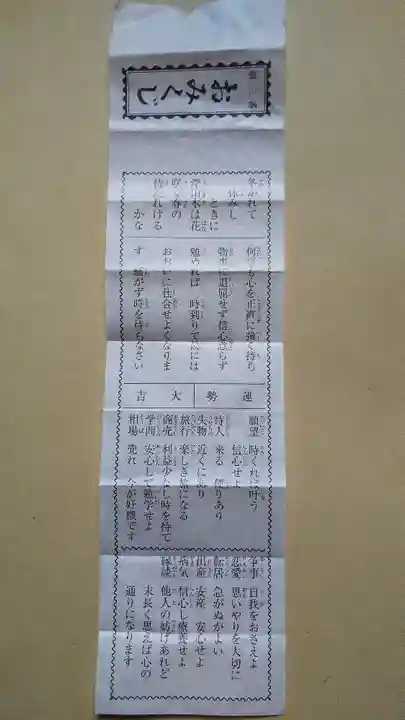 おみくじ
第三番
冬がれて
休みし
ときに
深山木は花
咲く春の
待たれける
かな
何事も心を正直に強く持ち
物事に退屈せず信心怠らず
勉めれば 時到りて後には
おおいに仕合せよくなりま
す 騒がず時を待ちなさい
運勢 大吉
願望 時くれば叶う
信心せよ
待人 来る 便りあり
失物 近くにあり
旅行 楽しき旅になる
商売 利益少なし時を待て
学問 安心して勉学せよ
相場 売れ 今が好機です
争事 自我をおさえよ
恋愛 思いやりを大切に
転居 急がぬがよい
出産 安産 安心せよ
病気 信心し療養せよ
縁談 他人の妨げあれど
末長く思えば心の
通りになります